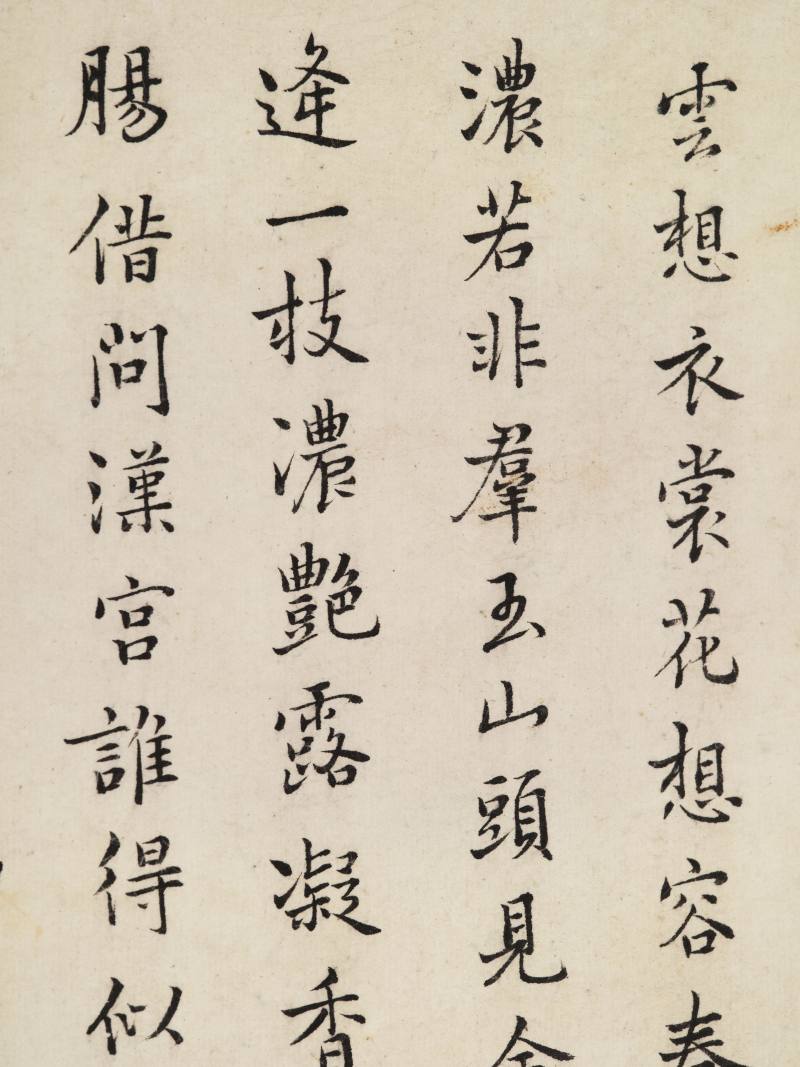 雲想衣裳花想容春
濃若非羣玉山頭見
逢一枝濃艷露凝香
腸借問漢宮誰得似